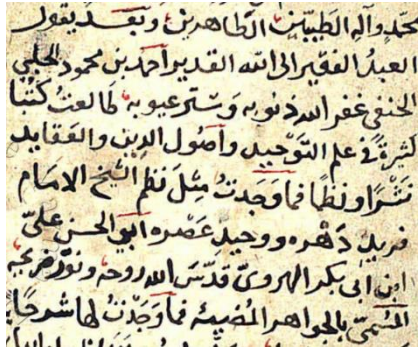 محمد وآله الطيبين الطاهرين وبعد يقول
العبد الفقير الى الله القدير احمد بن محمود الحلبي
الحنفي غفر الله ذنوبه وستر عيوبه طالعت كتبا
كثيرة في علم التوحيد واصول الدين والعقايد
نثرا ونظما فما وجدت مثل نظم الشيخ الامام
فريد دهره ووحيد عصره ابي الحسن علي
ابن ابي بكر الهروي قدس الله روحه ونور ضريحه
المسمى بالجواهر المضيئه فما وجدت لها شرحا